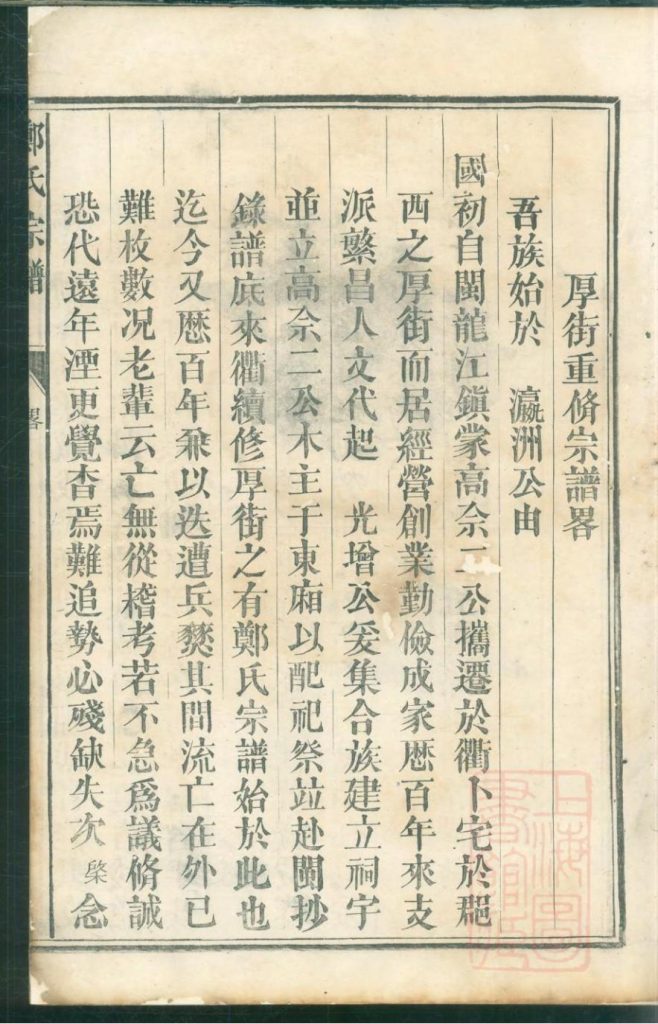 厚街重脩宗譜畧
吾族始於　瀛洲公由
國初自閩龍江鎭蒙高佘二公攜遷於衢卜宅於郡
西之厚街而居經營創業勤儉成家厯百年來支
派蘩昌人文代起　光增公爰集合族建立祠宇
並立高佘二公木主于東廂以配祀祭竝赴閩抄
錄譜底來衢續修厚街之有鄭氏宗譜始於此也
迄今又厯百年兼以迭遭兵燹其間流亡在外已
難枚數况老輩云亡無從稽考若不急爲議脩誠
恐代遠年湮更覺杳焉難追勢必殘缺失次棨念
鄭氏宗譜
畧
上海圖書館藏